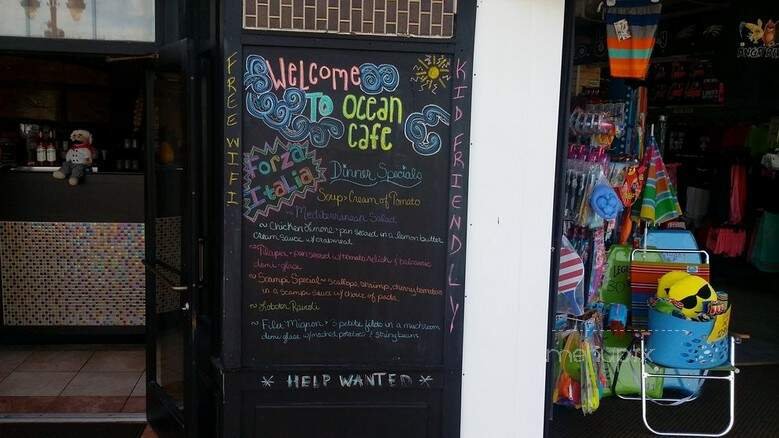 FREE WIFI
WELCOME
TO OCEAN
CAFE
KID FRIENDLY
Forza
Italia
Dinner Specials
Soup > Cream of Tomato
~ Mediterranean Salad
~ Chicken Limone > pan seared in a lemon butter
cream sauce w/ crabmeat
~ Tilapia > pan seared w/ tomato relish & balsamic
demi-glaze
~ Scampi Special ~ scallops, shrimp, cherry tomatoes
in a scampi sauce w/ choice of pasta
~ Lobster Ravioli
~ Filet Mignon > 3 petite filets in a mushroom
demi glaze w/ mashed potatoes & string beans
* HELP WANTED *
menupix